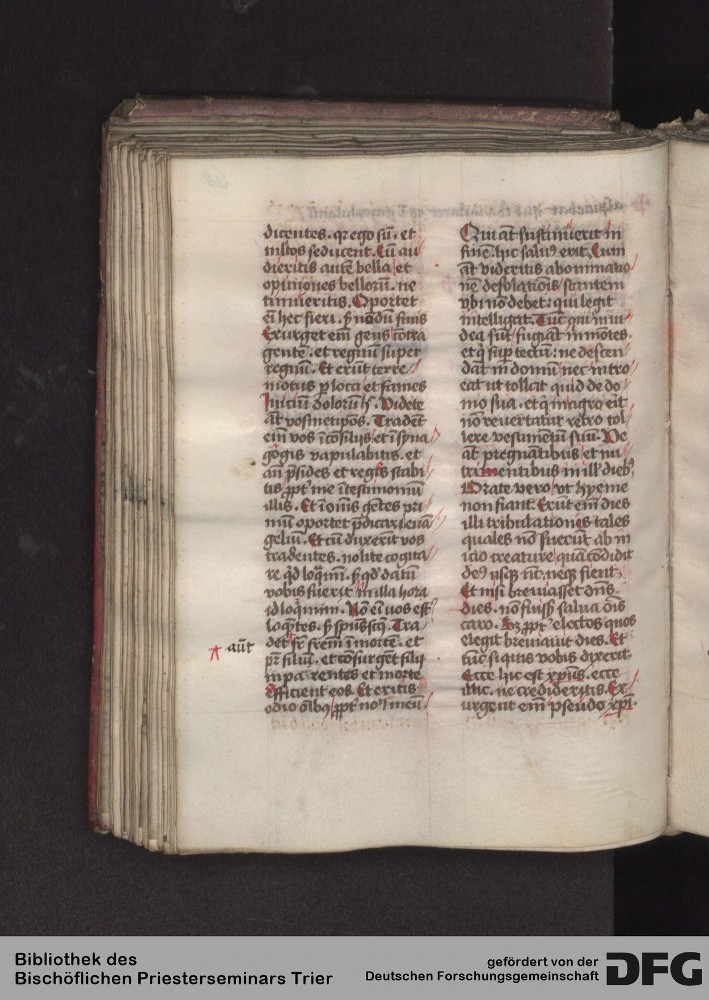 dicentes. qr ego sū. et
ml̄tos seducent. Cū au
dieritis autē bella et
opiniones bellorū. ne
timueritis. Oportet
ei hec fieri. s̄ nōdū finis
Exurget em̄ gens cōtra
gentē. et regnū super
regnū. Et erūt terre
motus p̱ loca et fames
Iniciū dolorū h̄. Videte
āt vosmetip̄os. Tradēt
em̄ vos ī cōsilijs et ī sȳna
gōgis vapulabitis. et
an̄ p̄sides et reges stabi
tis p̱pt̄ me ī testimoniū
illis. Et ī om̄s gētes pri
mū oportet p̄dicari euā
geliū. Et cū duxerīt vos
tradentes. nolite cogita
re qd̄ loq̄mī. s̄ qd̄ datū
vobis fuerit in illa hora
id loq̄mini. Nō ei uos est
loq̄tes. s̄ sp̄us sc̄s. Tra
det fr̄ frēm ī mortē. et
aūt
pr̄ filiū. et cōsurgēt filij
in parentes et morte
efficient eos. Et eritis
odio ōībꝫ p̱pt̄ nom̄ meū.
Qui āt sustinuerit in
finē. hic saluꝰ erit. Cum
āt videritis abominatio
nē desolationis stantem
vbi nō debet: qui legit
intelligat. Tūc qui in iu
dea sūt fugiāt in mōtes.
et q̄ sup̱ tectū: ne descen
dat in domū nec intro
eat ut tollat quid de do
mo sua. et q̄ in agro erit
nō reuertatur retro tol
lere vestimētū suū. Ve
āt pregnātibus et nu
trientibus in ill̄ diebꝰ.
Orate vero vt hyeme
non fiant. Erūt em̄ dies
illi tribulationes tales
quales nō fuerūt ab in
icio creature quā cōdidit
deꝰ usqꝫ nūc. neqꝫ fient.
Et nisi breuiasset dn̄s
dies. nō fuiss̄ salua ōīs
caro. Sꝫ p̱pt̄ electos quos
elegit breuiauit dies. Et
tūc si quis vobis dixerit.
Ecce hic est xp̄us. ecce
illic. ne credideritis. Ex
urgent em̄ pseudo xp̄i.
Bibliothek des
Bischöflichen Priesterseminars Trier
gefördert von der
Deutschen Forschungsgemeinschaft
DFG